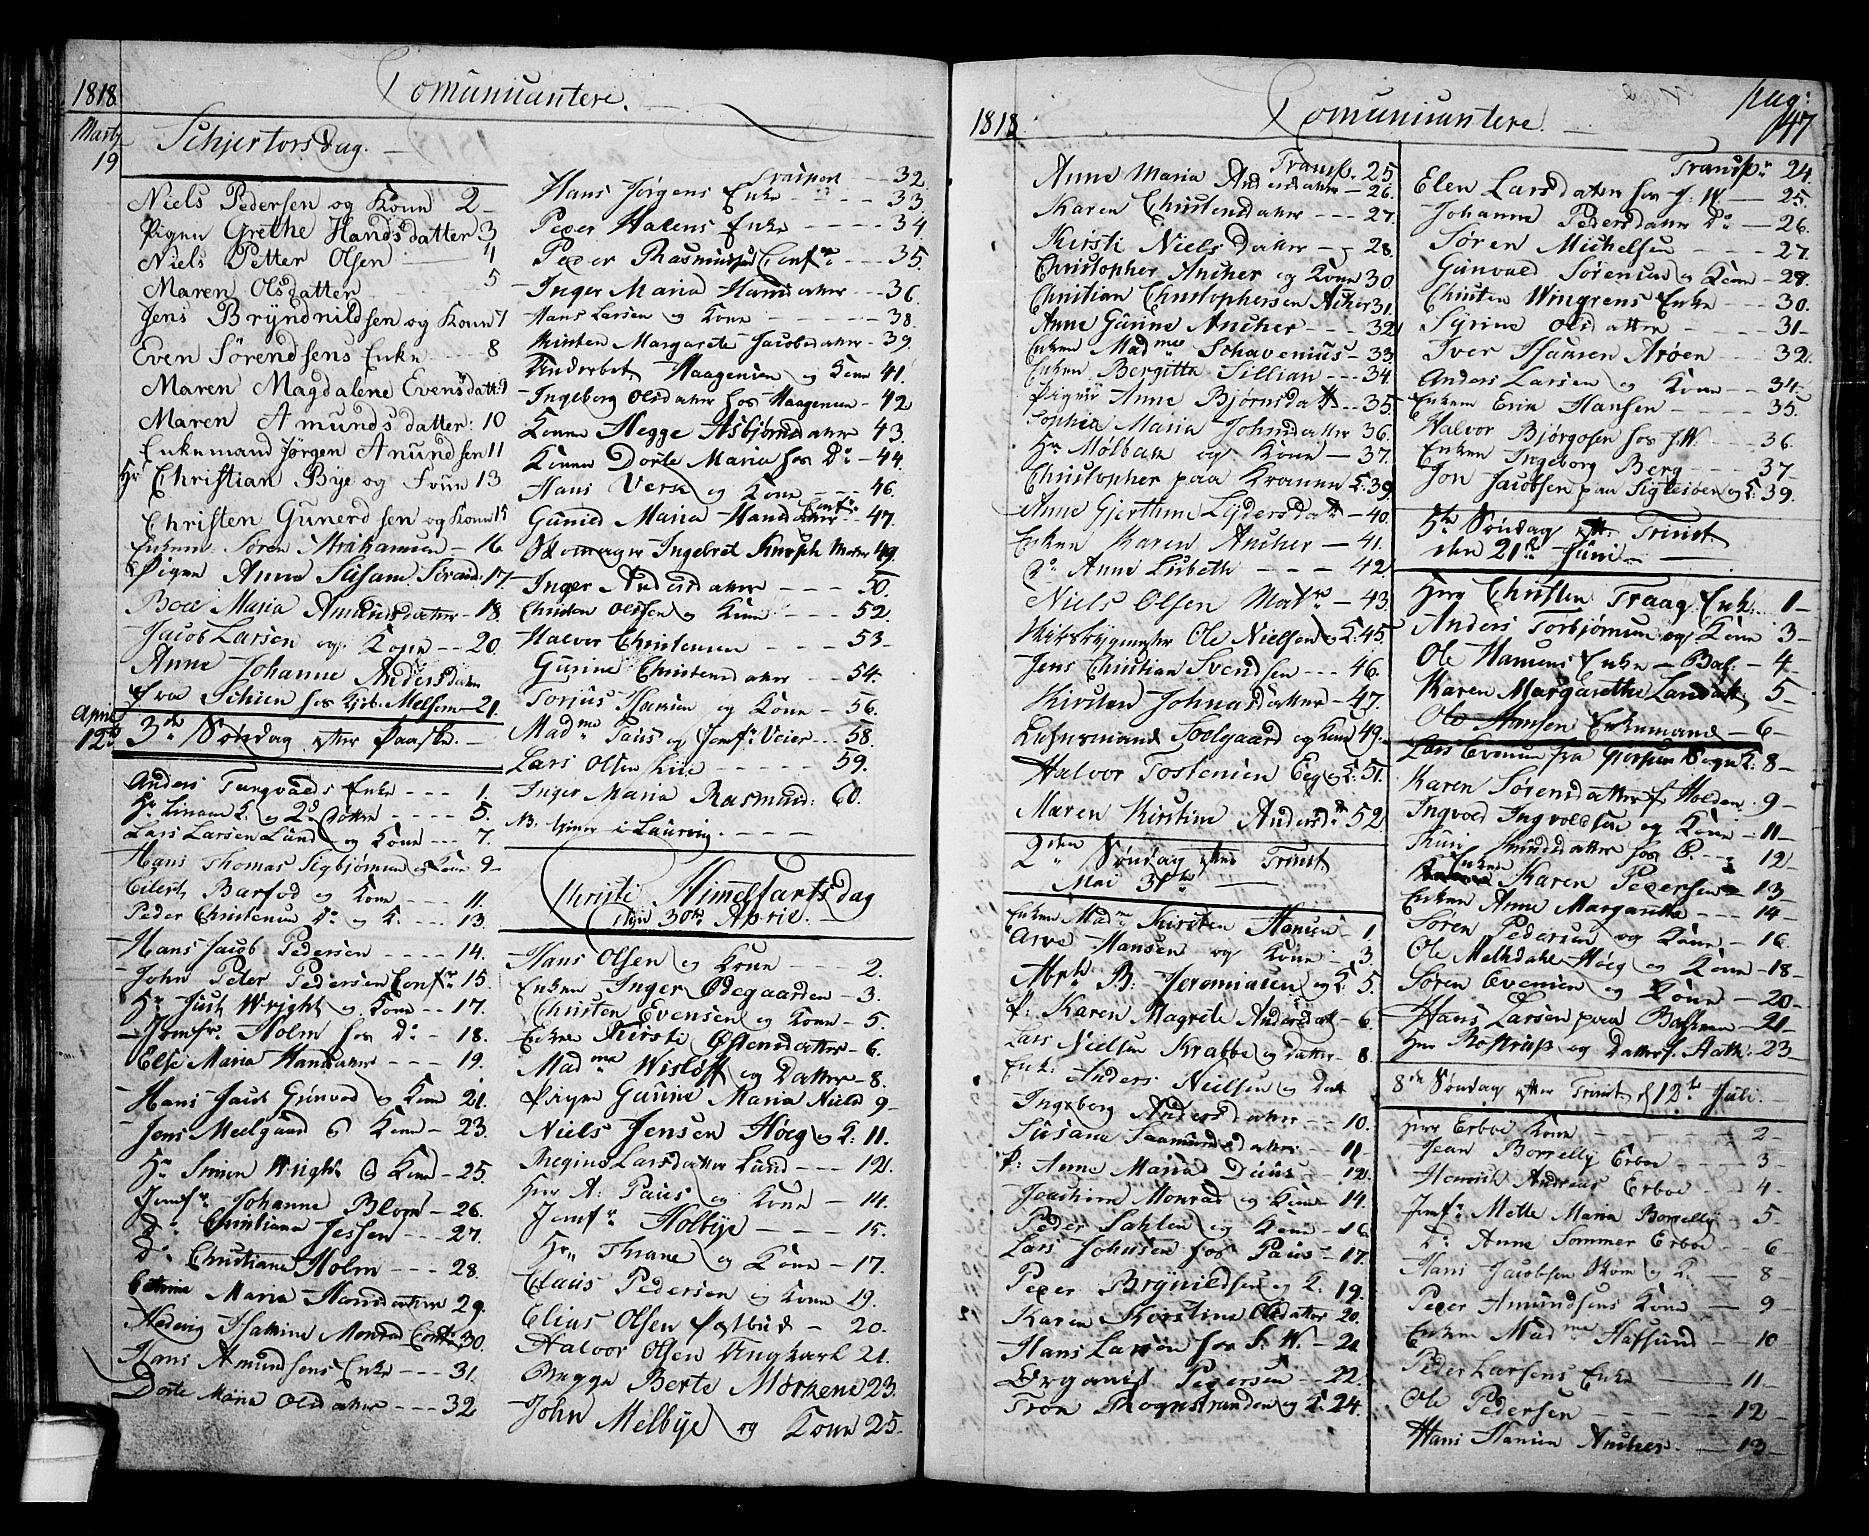 1818
Comuniuantere.
Marts 19
Schjertorsdag.
Niels Pedersen og Kone 2
Pigen Grethe Handsdatter 3
Niels Petter Olsen 4
Maren Olsdatter 5
Jens Bryndnildsen og Kone 7
Even Sørendsens Enke 8
Maren Magdalene Evensdatt: 9
Maren Amundsdatter: 10
Enkemand Jørgen Anundsen 11
Hr Christian Bye og Frue 13
Christen Gunerdsen og Kone 15
Enkem: Søren 16
Pigen Anne Susan. Strand. 17
Boel Maria Amundsdatter 18.
Jacob Larsen og Kone 20
Anne Johanne Andersdatter
fra Schien hos Melsom 21.
April 12te
3de Søndag efter Paaske.
Anders Torgvalds Enke 1.
Hr Linaae K. og 2de Døttre 5.
Lars Larsen Lund og Kone 7.
Hans Thomas Sigbjørnsen og Kone 9
Eilert Barfod og Kone 11.
Peder Christensen Do og K. 13.
Hans Jacob Pedersen 14.
John Peter Pedersen Confr 15.
Hr Just Wright og Kone 17.
Jomfr Holm hos Do 18.
Else Maria Hansdatter 19.
Hans Jacob Gunvad og Kone 21.
Jens Meelgaard og Kone 23.
Hr Simon Wright og Kone 25.
Jomfr Johanne Blom 26.
Do Christiana Jessen 27.
Do Christiane Holm 28.
Cathrine Maria Hansdatter 29.
Hedevig Hatrine Monrad Confr 30.
Hans Amundsens Enke 31.
Dorte Maria Olsdatter 32
Trasport 32.
Hans Jørgens Enke 33.
Peter Halens Enke 34.
Peter Rasmussen Confr 35.
Inger Maria Hansdatter 36.
Hans Larsen og Kone 38.
Kirsten Margarete Jacobsdatter 39.
Underbet Haagensen og Kone 41.
Ingeborg Olsdatter hos Haagensen 42
Konen Hegge Asbjørnsdatter 43.
Konen Dorte Maria hos Do 44.
Hans Versk og Kone 46.
Guned Maria Hansdatter Confr 47.
Skomager Ingebret Knoph Moder 49.
Inger Andersdatter 50.
Christen Olssen og Kone 52.
Halvor Christensen 53
Gurine Christensdatter 54.
Torjus Hansen og Kone 56.
Madme Paus og Jomfr Veier 58.
Lars Olsen Lie 59.
Inger Maria Rasmusd: 60.
NB. i Laurvig
Christi Himmelfartsdag
den 30te April.
Hans Olsen og Kone 2.
Enken Inger Ødegaarden 3.
Christen Evensen og Kone 5.
Enken Kirsti Østensdatter 6.
Madme Wisløff og Datter 8.
Pigen Gunine Maria Nield 9
Niels Jensen Høeg og K: 11.
Megine Larsdatter Lund 12.
Herr A: Paus og Kone 14.
Jomfr Holbye 15.
Hr Thrane og Kone 17.
Claus Pedersen og Kone 19.
Elias Olsen Postbud 20.
Halvor Olsen Ungkarl 21.
Begge Berte Mørkene 23.
John Melbye og Kone 25.
1818
Comuniuantere.
pag: 47
Transp. 25
Anne Maria Andersdatter 26.
Karen Christensdatter 27.
Kirsti Nielsdatter 28.
Christopher Ancher og Kone 30
Christian Christophersen Ancher 31.
Anne Gurine Ancher 32.
Enken Madme Schavenius 33
Enken Bergitta Sillian 34.
Pigen Anne Bjørnsdatt 35.
Sophia Maria Johnsdatter 36.
Hr Mølbach og Kone 37.
Christopher paa Kranen K: 39.
Anne Gjerthine Leydersdatt 40.
Enken Karen Ancher 41.
Do Anne Lisbeth 42
Niels Olsen Matr 43.
Skibsbygmester Ole Nielsen og K: 45.
Jens Christian Svendsen 46.
Kirsten Johnasdatter 47.
Lehnsmand Soolgaard og Kone 49.
Halvor Tostensen Eeg og K: 51.
Maren Kirstine Andersdr 52
2den Søndag efter Trinit
Mai 31te
Enken Madme Kirsten Hansen 1
Arve Hansen og Kone 3.
Abrh B. Jeromiasen og K. 5.
P. Karen Magrete Andersdatt 6.
Lars Nielsen Krabbe og Datter 8.
Enk: Anders Nielsen og Datt
Ingeborg Andersdatter 10.
Susana Saamundsdatter 11
P. Anne Maria Duus 12.
Joachim Monrad og Kone 14.
Peder Sahlen og Kone 16
Lars Johnsen hos Paus 17.
Peter Brynildsen og K. 19.
Karen Kirstine Olsdatter 20.
Hans Larsøn hos S. W. 21
Organist Petersen 22.
Tron Rognstranden og K. 24.
Transpr 24.
Elen Larsdatter hos J. W 25.
Johanne Pedersdatter Do 26.
Søren Mickelsen 27.
Gunvald Sørensen og Kone 29.
Christen Wingrens Enke 30.
Syrine Olsdatter 31
Iver Hansen Arøen 32.
Anders Larsen og Kone 34.
Enkem Erik Hansen 35.
Halvor Bjørgosen hos J. W. 36.
Enken Ingeborg Berg 37
Jon Jacobsen paa Sigtesøen og K: 39.
5te Søndag eftr Trinit
den 21de Juni
Herr Christen Traag Enk: 1
Anders Torbjørnsen og Kone 3
Ole Hansens Enke Bas: 4
Karen Margarethe Larsdatt 5
Ole Hansen Enkemand 6
Lars Evensen fra Gjerpen Sogn K: 8
Karen Sørensdatter f. Holden 9
Ingvold Ingvoldsen og Kone 11
Knudsdatter hos P. 12
Enken Karen Petersen 13
Enken Anne Margarethe 14
Søren Pedersen og Kone 16
Ole Melkdahl Høeg og Kone 18
Søren Evensen og Kone 20
Hans Larsen paa Bakken 21
Herr Rostrup og Datter f. Aath: 23
8de Søndag efter Trinit d 12te Juli.
Herr Erboe Kone 2
Jean Borrelly Erboe 3
Henrick Andreas Erboe 4
Jomfr Mette Maria Borrelly 5
Do Anne Sommer Erboe 6
Hans Jacobsen Skom og K. 8
Peter Amundsens Kone 9
Enken Madme Hafsund 10
Peder Larsens Enke 11
Ole Pedersen 12
Hans Hansen Ancher. 13